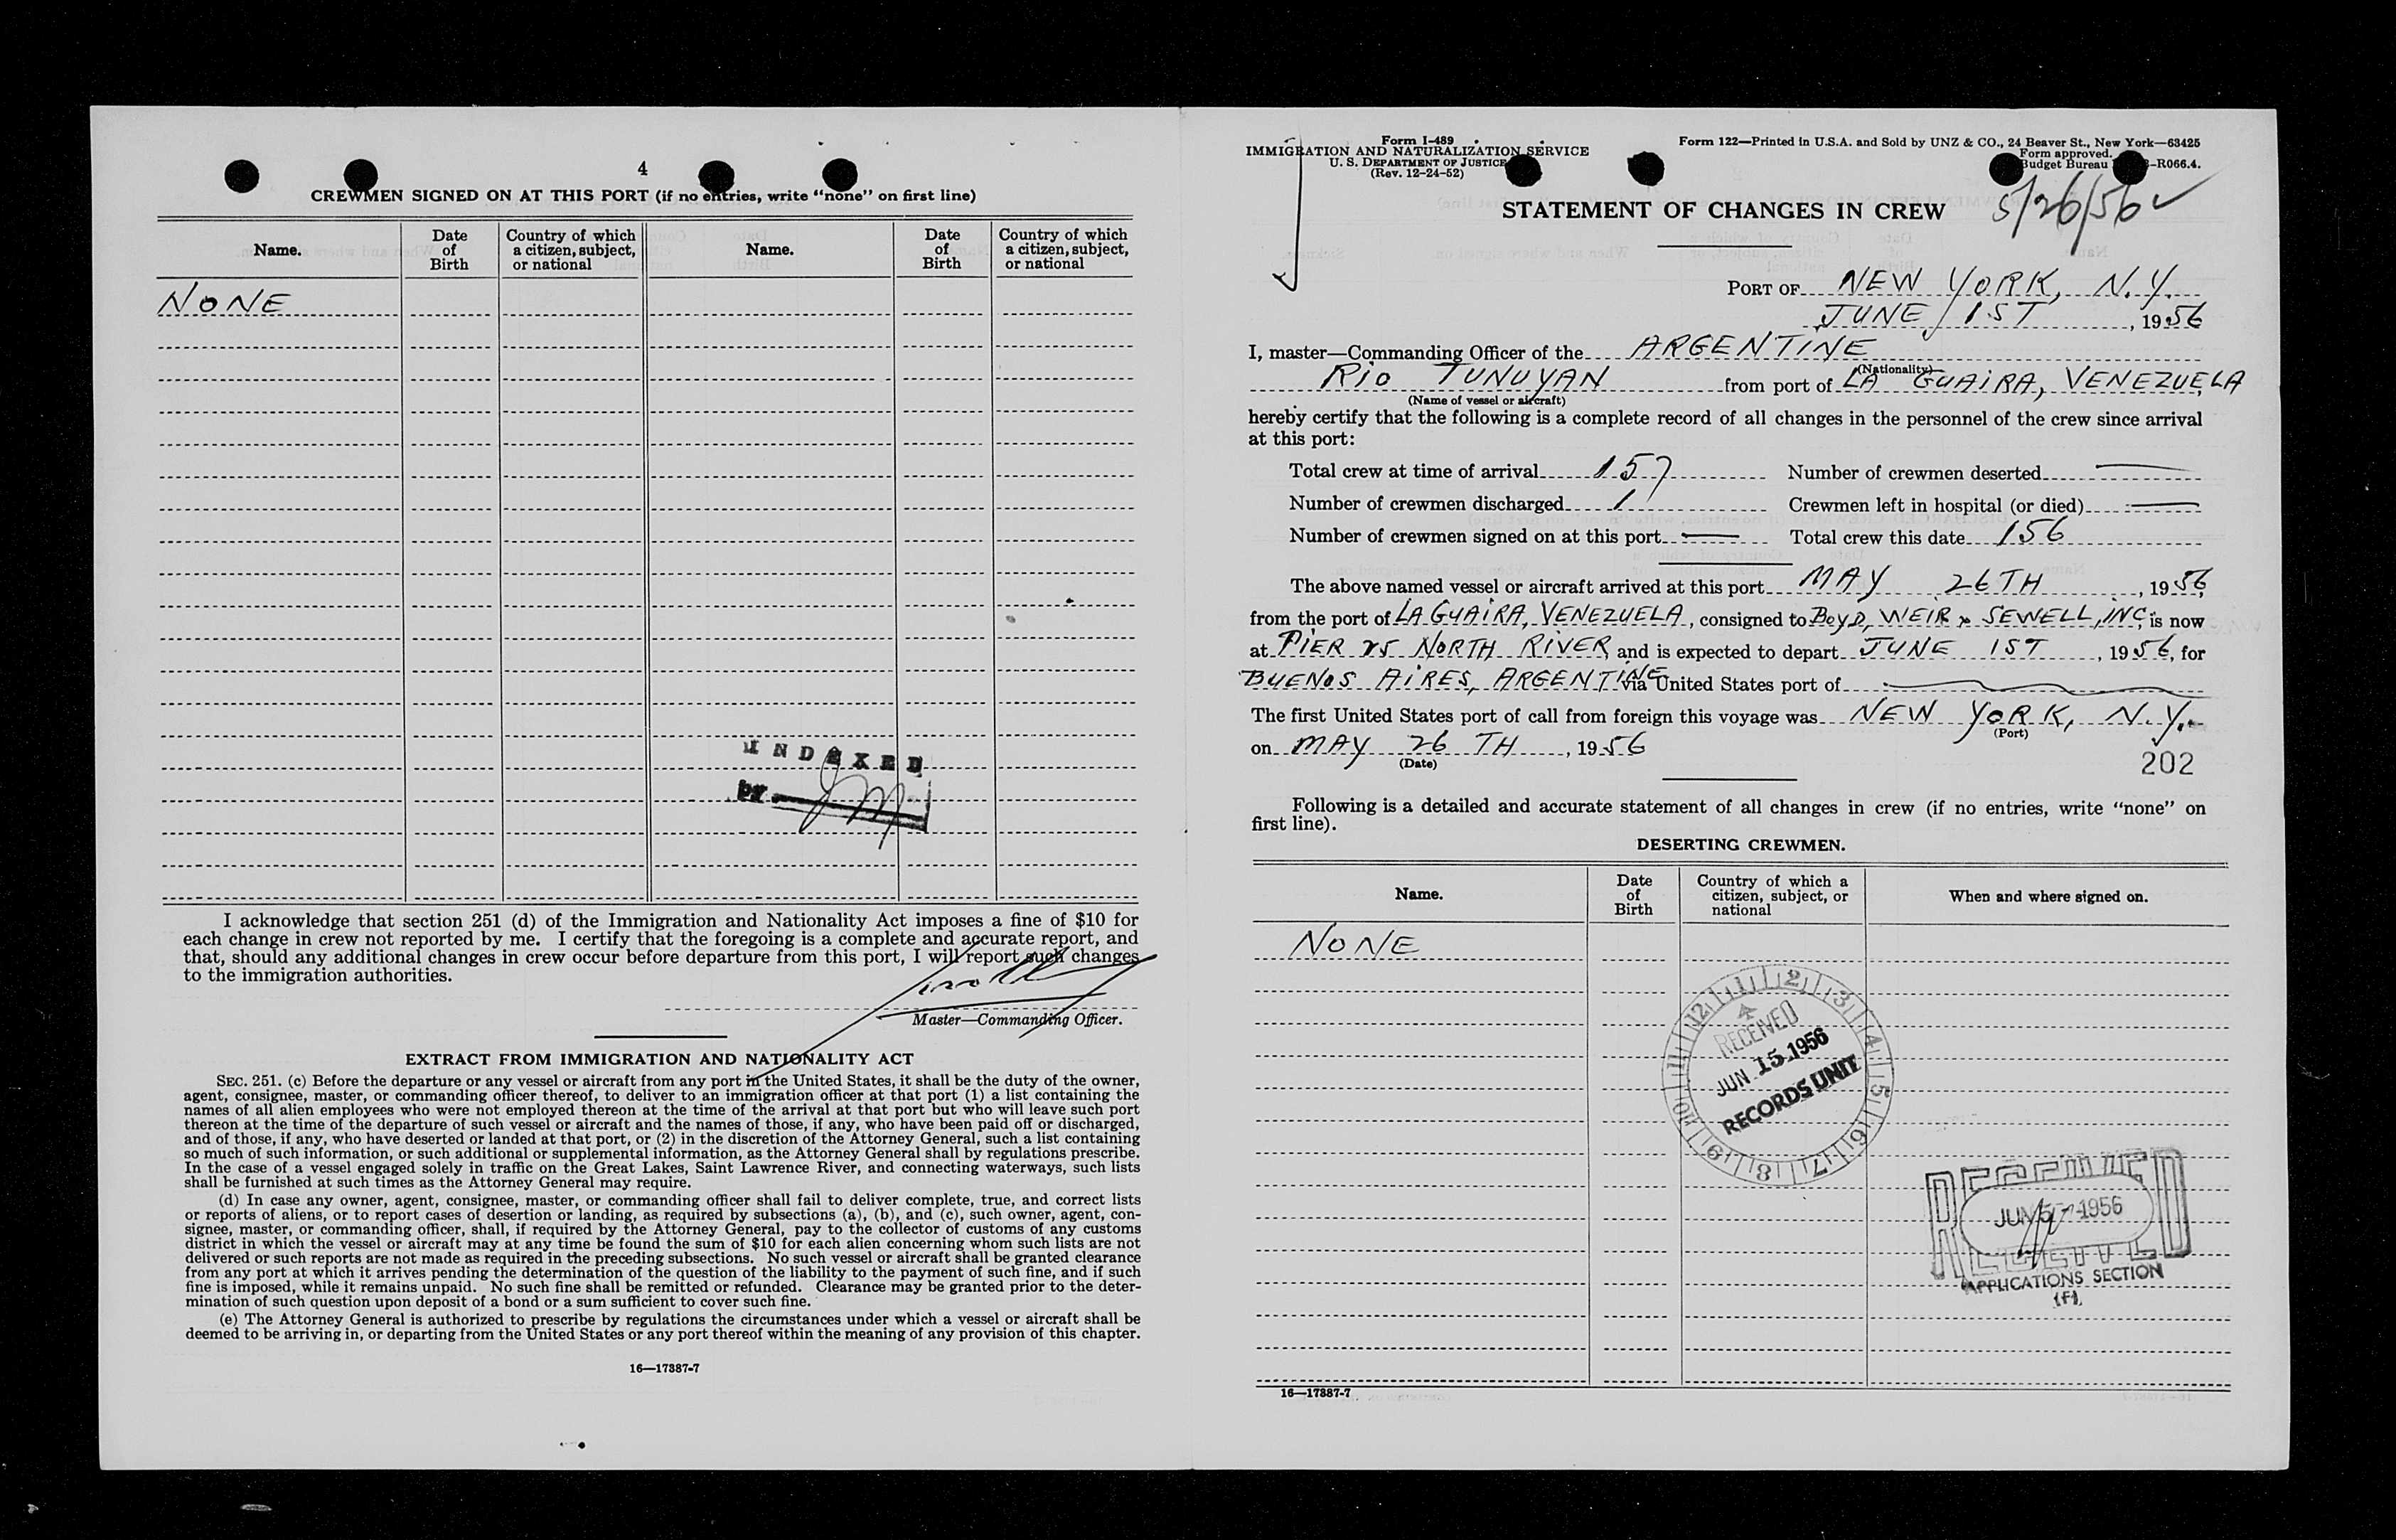 4
CREWMEN SIGNED ON AT THIS PORT (if no entries, write "none" on first line)
Name. Date of Birth Country of which a citizen, subject, or national Name. Date of Birth Country of which a citizen, subject, or national
NONE
INDEXED
by
I acknowledge that section 251 (d) of the Immigration and Nationality Act imposes a fine of $10 for
each change in crew not reported by me. I certify that the foregoing is a complete and accurate report, and
that, should any additional changes in crew occur before departure from this port, I will report such changes
to the immigration authorities.
Master—Commanding Officer.
EXTRACT FROM IMMIGRATION AND NATIONALITY ACT
SEC. 251. (c) Before the departure or any vessel or aircraft from any port in the United States, it shall be the duty of the owner,
agent, consignee, master, or commanding officer thereof, to deliver to an immigration officer at that port (1) a list containing the
names of all alien employees who were not employed thereon at the time of the arrival at that port but who will leave such port
thereon at the time of the departure of such vessel or aircraft and the names of those, if any, who have been paid off or discharged,
and of those, if any, who have deserted or landed at that port, or (2) in the discretion of the Attorney General, such a list containing
so much of such information, or such additional or supplemental information, as the Attorney General shall by regulations prescribe.
In the case of a vessel engaged solely in traffic on the Great Lakes, Saint Lawrence River, and connecting waterways, such lists
shall be furnished at such times as the Attorney General may require.
(d) In case any owner, agent, consignee, master, or commanding officer shall fail to deliver complete, true, and correct lists
or reports of aliens, or to report cases of desertion or landing, as required by subsections (a), (b), and (c), such owner, agent, con-
signee, master, or commanding officer, shall, if required by the Attorney General, pay to the collector of customs of any customs
district in which the vessel or aircraft may at any time be found the sum of $10 for each alien concerning whom such lists are not
delivered or such reports are not made as required in the preceding subsections. No such vessel or aircraft shall be granted clearance
from any port at which it arrives pending the determination of the question of the liability to the payment of such fine, and if such
fine is imposed, while it remains unpaid. No such fine shall be remitted or refunded. Clearance may be granted prior to the deter-
mination of such question upon deposit of a bond or a sum sufficient to cover such fine.
(e) The Attorney General is authorized to prescribe by regulations the circumstances under which a vessel or aircraft shall be
deemed to be arriving in, or departing from the United States or any port thereof within the meaning of any provision of this chapter.
16—17387-7
Form I-489
IMMIGRATION AND NATURALIZATION SERVICE
U. S. DEPARTMENT OF JUSTICE
(Rev. 12-24-52)
Form 122—Printed in U.S.A. and Sold by UNZ & CO., 24 Beaver St., New York—63425
Form approved.
Budget Bureau -R066.4.
5/26/56
STATEMENT OF CHANGES IN CREW
PORT OF NEW YORK, N.Y.
JUNE 1ST, 1956
I, master—Commanding Officer of the ARGENTINE
(Nationality)
RIO TUNUYAN from port of LA GUAIRA, VENEZUELA
(Name of vessel or aircraft)
hereby certify that the following is a complete record of all changes in the personnel of the crew since arrival
at this port:
Total crew at time of arrival 157 Number of crewmen deserted —
Number of crewmen discharged 1 Crewmen left in hospital (or died) —
Number of crewmen signed on at this port — Total crew this date 156
The above named vessel or aircraft arrived at this port MAY 26TH, 1956
from the port of LA GUAIRA, VENEZUELA, consigned to BOYD, WEIR & SEWELL, INC, is now
at PIER 25 NORTH RIVER and is expected to depart JUNE 1ST, 1956, for
BUENOS AIRES, ARGENTINE via United States port of —
The first United States port of call from foreign this voyage was NEW YORK, N.Y.
(Port)
on MAY 26 TH, 1956
(Date)
202
Following is a detailed and accurate statement of all changes in crew (if no entries, write "none" on
first line).
DESERTING CREWMEN.
Name. Date of Birth Country of which a citizen, subject, or national When and where signed on.
NONE
12 1 2 3 4 5 6 7 8 9 10 11
RECEIVED
JUN 15 1956
RECORDS UNIT
RECEIVED
JUN 1956
RECEIVED
APPLICATIONS SECTION
(F)
16—17387-7